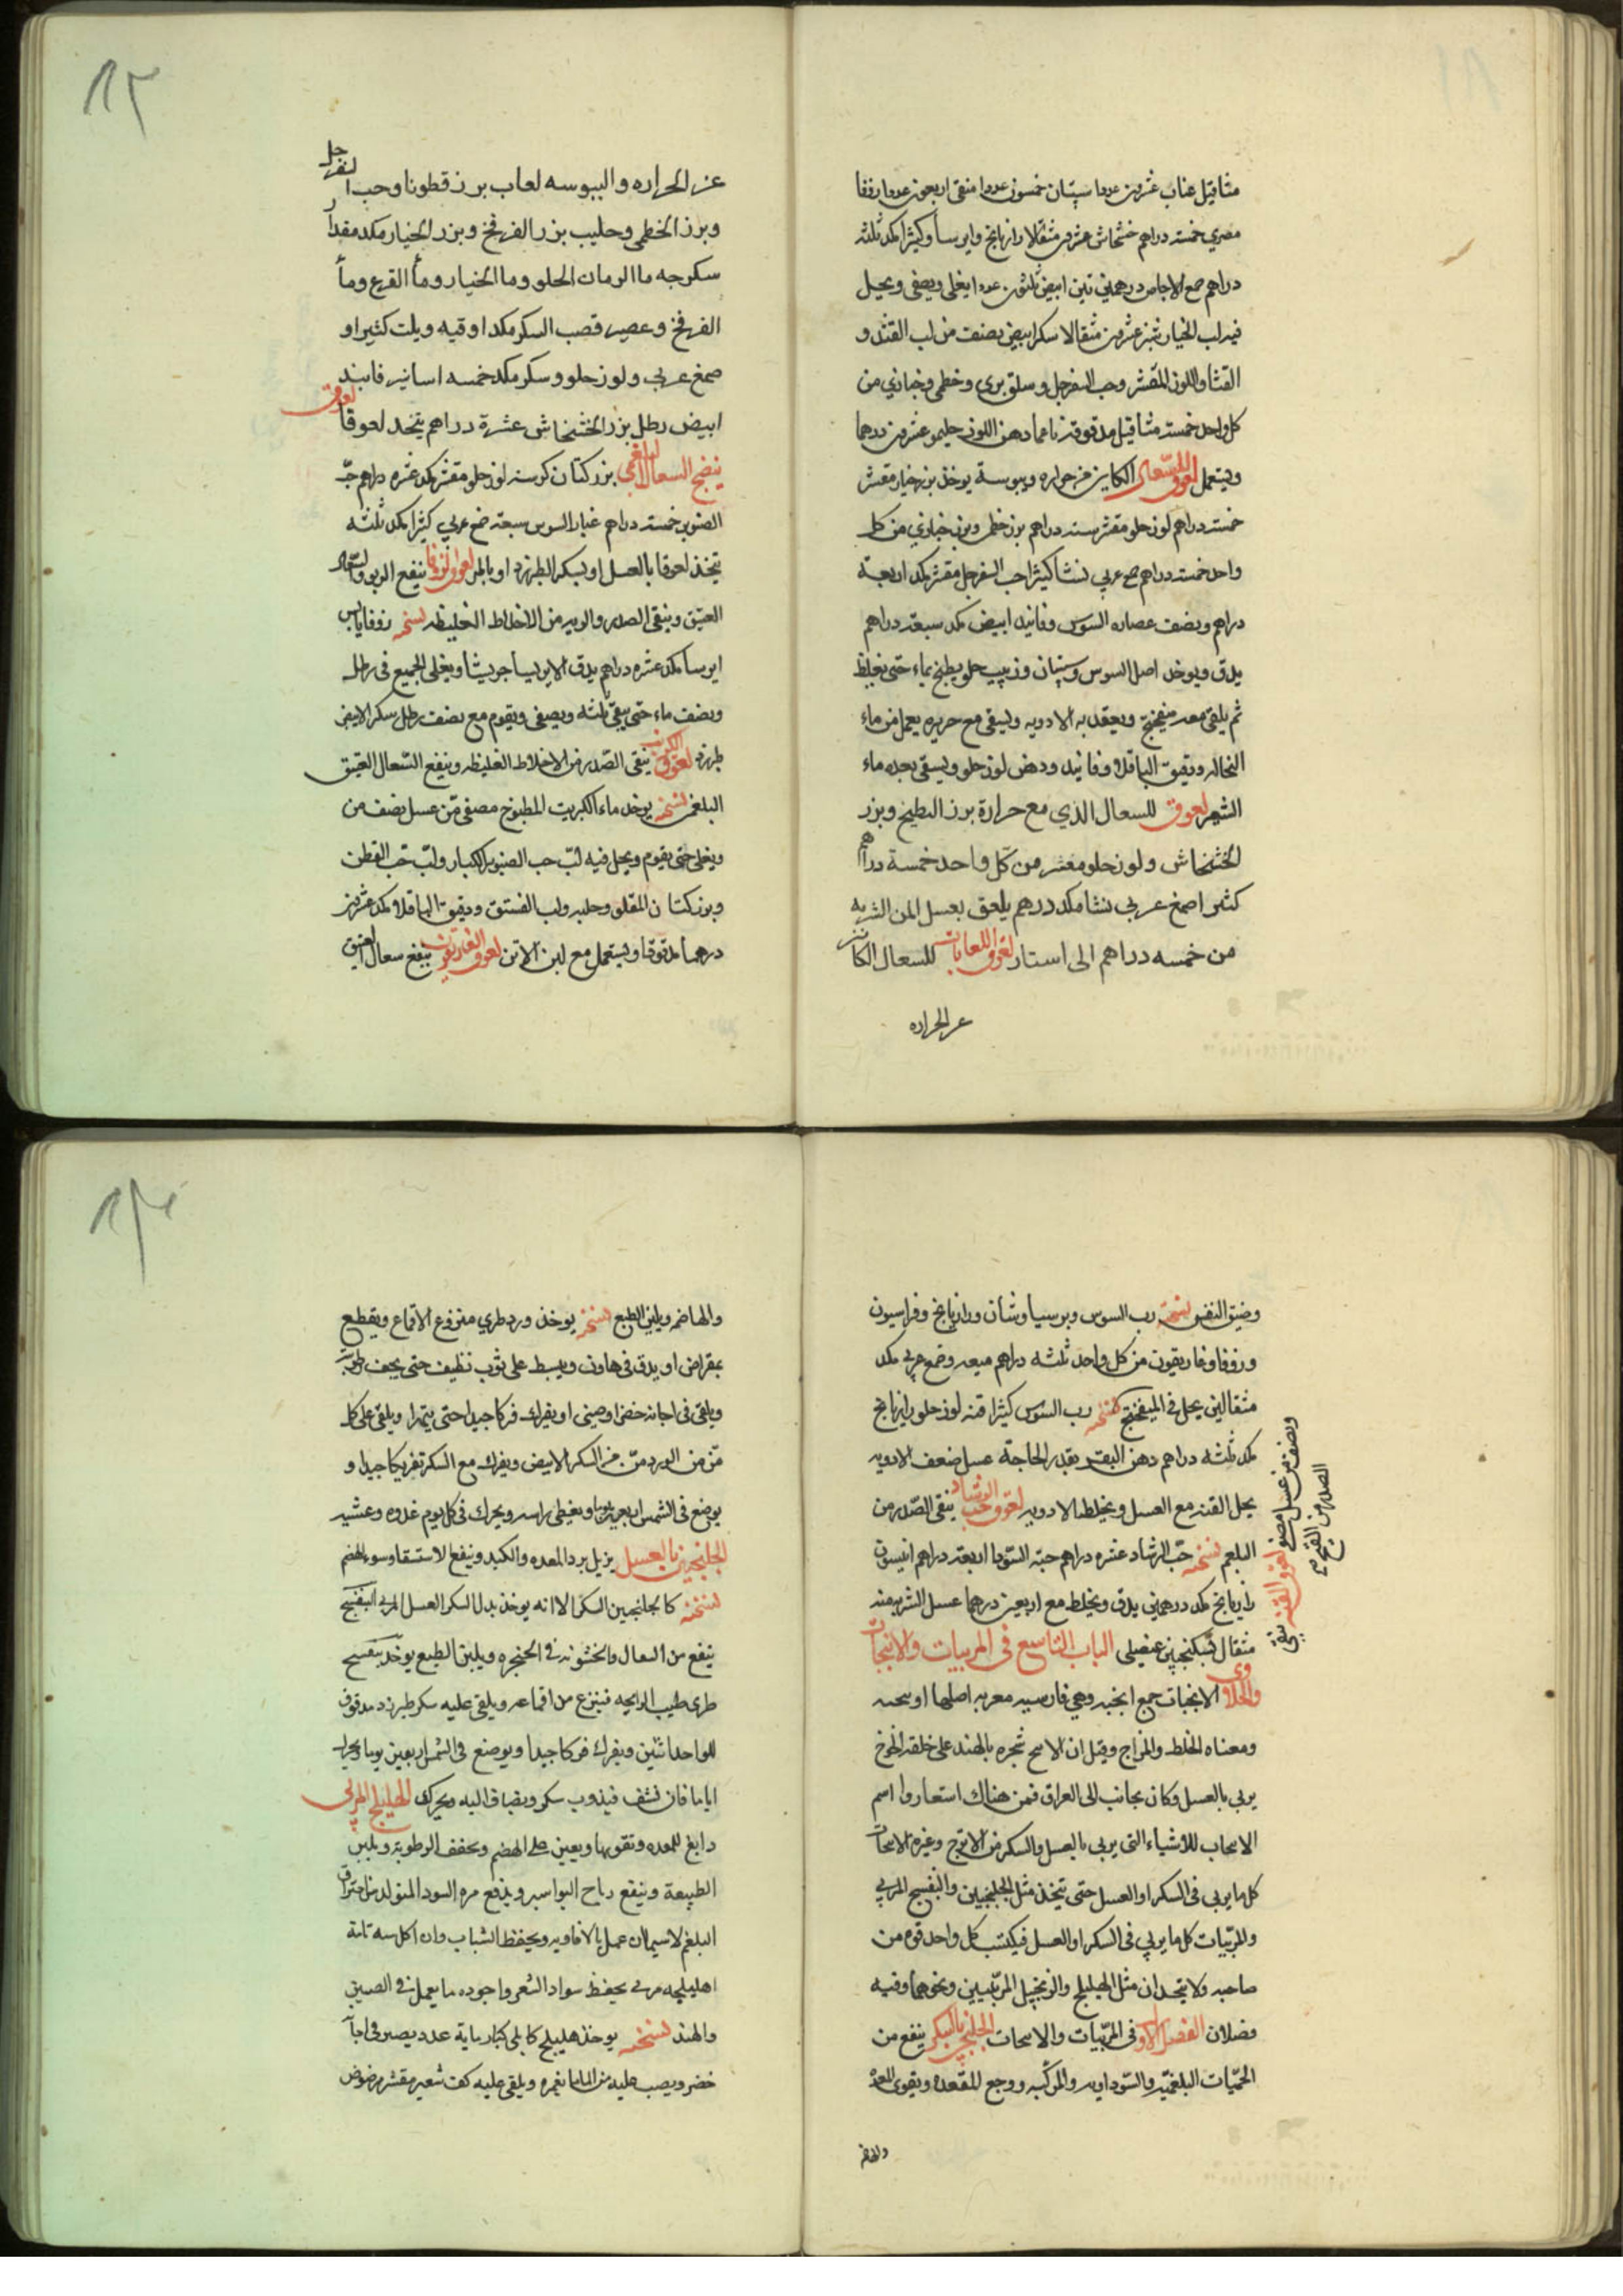 مثاقيل عناب عشرين عددا سپستان خمسون عددا منقى اربعون عددا زوفا
مصري خمسة دراهم خشخاش عشرين مثقالا رازيانج وايرسا وكثيرا مكد ثلثة
دراهم صمغ الاجاص درهمين تين ابيض ثلثون عددا يغلى ويصفى ويحل
فيه لب الخيار شنبر عشرين مثقالا سكر ابيض نصف من لب القثد و
القثا واللوز المقشر وحب السفرجل وسلق بري وخطمي وخبازي من
كل واحد خمسة مثاقيل مدقوقة ناعما دهن اللوز حليو عشرين درهما
ويستعمل لعوق للسعال الكاين من حراره ويبوسة يوخذ بزر خيار مقشر
خمسة دراهم لوز حلو مقشر ستة دراهم بزر خطمي وبزر خبازي من كل
واحد خمسة دراهم صمغ عربي نشا كثيرا حب السفرجل مقشر مكد اربعة
دراهم ونصف عصاره السوس وفانيد ابيض مكد سبعة دراهم
يدق ويوخذ اصل السوس وسپستان وزبيب حلو يطبخ بماء حتى يغلظ
ثم يلقى معه ميفختج ويعقد به الادويه ويسقى مع حريره يعمل من ماء
النخاله ودقيق الباقلا وفانيد ودهن لوز حلو ويسقى بعده ماء
الشعير لعوق للسعال الذي مع حرارة بزر البطيخ وبزر
الخشخاش ولوز حلو مقشر من كل واحد خمسة دراهم
كثيرا صمغ عربي نشا مكد درهم يلعق بعسل المن الشربه
من خمسه دراهم الى استار لعوق اللعابات للسعال الكاين
عن الحراره
عن الحراره واليبوسه لعاب بزر قطونا وحب السفرجل
وبزر الخطمي وحليب بزر الفرفخ وبزر الخيار مكد مقدار
سكرجه ماالرمان الحلو وما الخيار وماء القرع وماء
الفرفخ وعصير قصب السكر مكد اوقيه ويلت كثيرا و
صمغ عربي ولوز حلو وسكر مكد خمسه اساتير فانيد
ابيض رطل بزر الخشخاش عشرة دراهم يتخذ لعوقا لعوق
ينضج السعال البلغمي بزر كتان كرسنه لوز حلو مقشر مكد عشره دراهم حب
الصنوبر خمسة دراهم غبار السوس سبعة صمغ عربي كثيرا مكد ثلثه
يتخذ لعوقا بالعسل او بسكر الطبرزد او بالمر لعوق الزوفا ينفع الربو والسعال
العتيق وينقى الصدر والريه من الاخلاط الغليظه نسخه زوفا يابس
ايرسا مكد عشره دراهم يدق الايرسا جريشا ويغلى الجميع في رطل
ونصف ماء حتى يبقى ثلثه ويصفى ويقوم مع نصف رطل سكر الابيض
طبرزد لعوق الكرنب ينقى الصدر من الاخلاط الغليظه وينفع السعال العتيق
البلغمي نسخه يوخذ ماء الكبريت المطبوخ مصفى من عسل نصف من
ويغلى حتى يقوم ويحل فيه لب حب الصنوبر الكبار ولب حب القطن
وبزر كتان المقلو وحلبه ولب الفستق ودقيق الباقلا مكد عشرين
درهما مدقوقا ويستعمل مع لبن الاتن لعوق الغاريقون ينفع سعال العتيق
وضيق النفس نسخه رب السوس وبرسياوشان ورازيانج وفراسيون
وزوفا وغاريقون من كل واحد ثلثه دراهم ميعه وصمغ عربي مكد
مثقالين يحل في الميفختج نسخه رب السوس كثيرا قنه لوز حلو رازيانج
مكد ثلثه دراهم دهن البقر بقدر الحاجة عسل ضعف الادويه
يحل القنه مع العسل ويخلط الادويه لعوق حب الرشاد ينقى الصدر من
البلغم نسخه حب الرشاد عشره دراهم حبة السودا اربعة دراهم انيسون
رازيانج مكد درهمين يدق ويخلط مع اربعين درهما عسل الشربه منه
مثقال بسكنجبين عنصلي الباب التاسع في المربيات والانبجات
والحلاوى الانبجات جمع انبجه وهي فارسيه معربه اصلها
ومعناه الخلط والمزاج وقيل ان الانبج شجره بالهند على خلقة الخوخ
يربى بالعسل وكان يجانب الى العراق فمن هناك استعاروا اسم
الانبجات للاشياء التي يربى بالعسل والسكر من الاترج وغيره الانبجات
كل ما يربى في السكر او العسل حتى يتخذ مثل الجلنجبين والبنفسج المربى
والمربيات كل ما يربى في السكر او العسل فيكتسب كل واحد قوه من
صاحبه ولا يتحدان مثل الهليلج والزنجبيل المربيين ونحوهما وفيه
فصلان الفصل الاول في المربيات والانبجات الجلنجبين بالسكر ينفع من
الحميات البلغميه والسوداويه والمركبه ووجع المقعده ويقوى المعده
والهاضم
ونصف من عسل مصفى لعوق القنه ينقى
الصدر من القيح
والهاضمه ويلين الطبع نسخه يوخذ ورد طري منزوع الاقماع ويقطع
بمقراض او يدق في هاون ويبسط على ثوب نظيف حتى يجف رطوبته
ويلقى في اجانه خضرا وصيني او يفرك فركا جيدا حتى يتهرا ويلقى على كل
من من الورد من من السكر الابيض ويفرك مع السكر تفريكا جيدا و
يوضع في الشمس اربعين يوما ويغطى راسه ويحرك في كل يوم غدوه وعشيه
الجلنجبين بالعسل يزيل برد المعده والكبد وينفع الاستسقا وسوء الهضم
نسخته كالجلنجبين السكر الا انه يوخذ بدل السكر العسل المربى البنفسج
ينفع من السعال والخشونه في الحنجره ويلين الطبع يوخذ بنفسج
طري طيب الرايحه فينزع من اقماعه ويلقى عليه سكر طبرزد مدقوق
للواحد اثنين ويفرك فركا جيدا ويوضع في الشمس اربعين يوما ويحرك
اياما فان نشف فيذوب سكر ويضاف اليه ويحرك الهليلج المربى
دابغ للمعده وتقويها ويعين على الهضم ويجفف الرطوبة ويلين
الطبيعة وينفع رياح البواسير ويدفع مره السودا المتولد من احتراق
البلغم لاسيما ان عمل بالافاويه ويحفظ الشباب وان اكل سنه تامة
اهليلجه مربى يحفظ سواد الشعر واجوده ما يعمل في الصين
والهند نسخه يوخذ هليلج كابلي كبار ماية عدد يصير في اجانة
خضر ويصب عليه من الماما يغمره ويلقى عليه كف شعير مقشر مرضوض